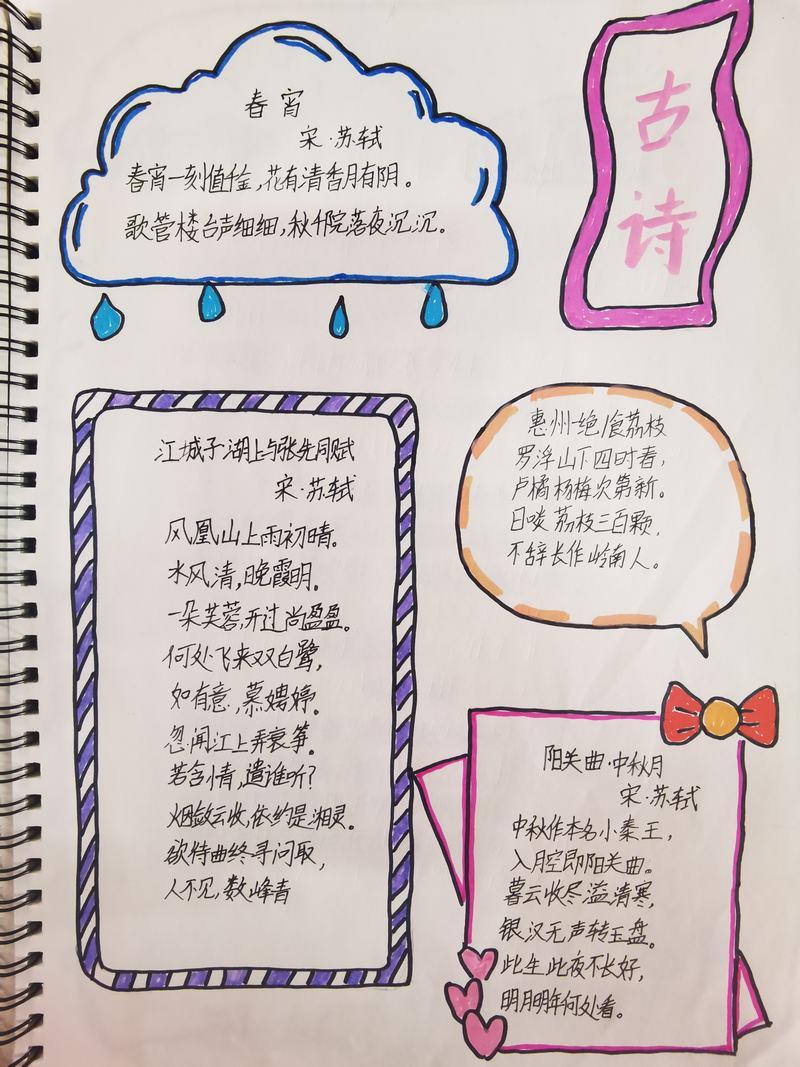 春宵
宋·苏轼
春宵一刻值千金,花有清香月有阴。
歌管楼台声细细,秋千院落夜沉沉。
古诗
江城子·湖上与张先同赋
宋·苏轼
凤凰山上雨初晴。
水风清,晚霞明。
一朵芙蓉,开过尚盈盈。
何处飞来双白鹭,
如有意,慕娉婷。
忽闻江上弄哀筝。
若含情,遣谁听?
烟敛云收,依约是湘灵。
欲待曲终寻问取,
人不见,数峰青
惠州一绝/食荔枝
罗浮山下四时春,
卢橘杨梅次第新。
日啖荔枝三百颗,
不辞长作岭南人。
阳关曲·中秋月
宋·苏轼
中秋作本名小秦王,
入月空即阳关曲。
暮云收尽溢清寒,
银汉无声转玉盘。
此生此夜不长好,
明月明年何处看。